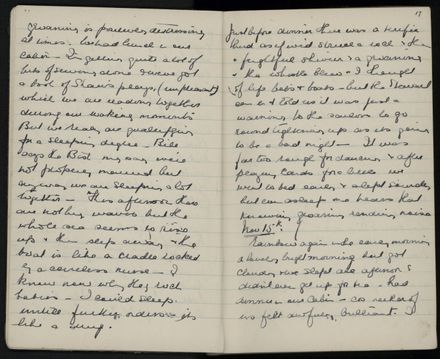 groaning is positively distressing
at times. We had lunch in our
cabin – I'm getting quite a lot of
bits of sewing done & we've got
a book of Shaw's plays, (unpleasant)
which we are reading together
during our waking moments
But we really are qualifying
for a sleeping degree –
says the
not properly married but
anyway we are sleeping a lot
together – This afternoon there
are not big waves but the
whole sea seems to rise
up & then slip away & the
boat is like a cradle rocked
by a careless nurse – I
know now why they rock
babies – I could sleep
until further orders – its
like a drug.
17
Just before dinner there was a terrific
thud as if we'd struck a rock & then
a frightful shiver & a groaning
& the whistle blew – I thought
of life belts & boats – but the steward
came in & told us it was just a
warning to the sailors to go
round tightening up as its going
to be a bad night – It was
far too rough for dancing & after
playing cards for a bit we
went to bed early & slept soundly
but even asleep one hears that
groaning rending noise
Nov 10th.
Rainbow again in the early morning
a lovely bright morning but got
cloudy & we slept all afternoon &
didn't even get up for tea – had
dinner in our cabin – as neither of
us felt awfully brilliant. I